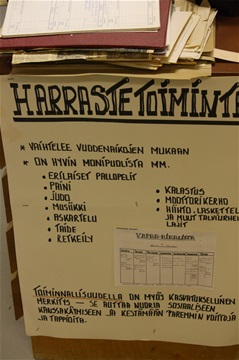 HARRASTETOIMINT
* VAIHTELEE VUODENAIKOJEN MUKAAN
* ON HYVIN MONIPUOLISTA MM.
• ERILAISET PALLOPELIT
• PAINI
• JUDO
• MUSIIKKI
• ASKARTELU
• TAIDE
• RETKEILY
• KALASTUS
• MOOTTORIKERHO
• HIIHTO, LASKETTEL
JA MUUT TALVIURHEI
LAJIT
TOIMINNALLISUUDELLA ON MYÖS KASVATUKSELLINEN
MERKITYS – SE AUTTAA NUORIA SOSIAALISEEN
KANSSAKÄYMISEEN JA KESTÄMÄÄN PAREMMIN VOITTOJA
JA TAPPIOITA.